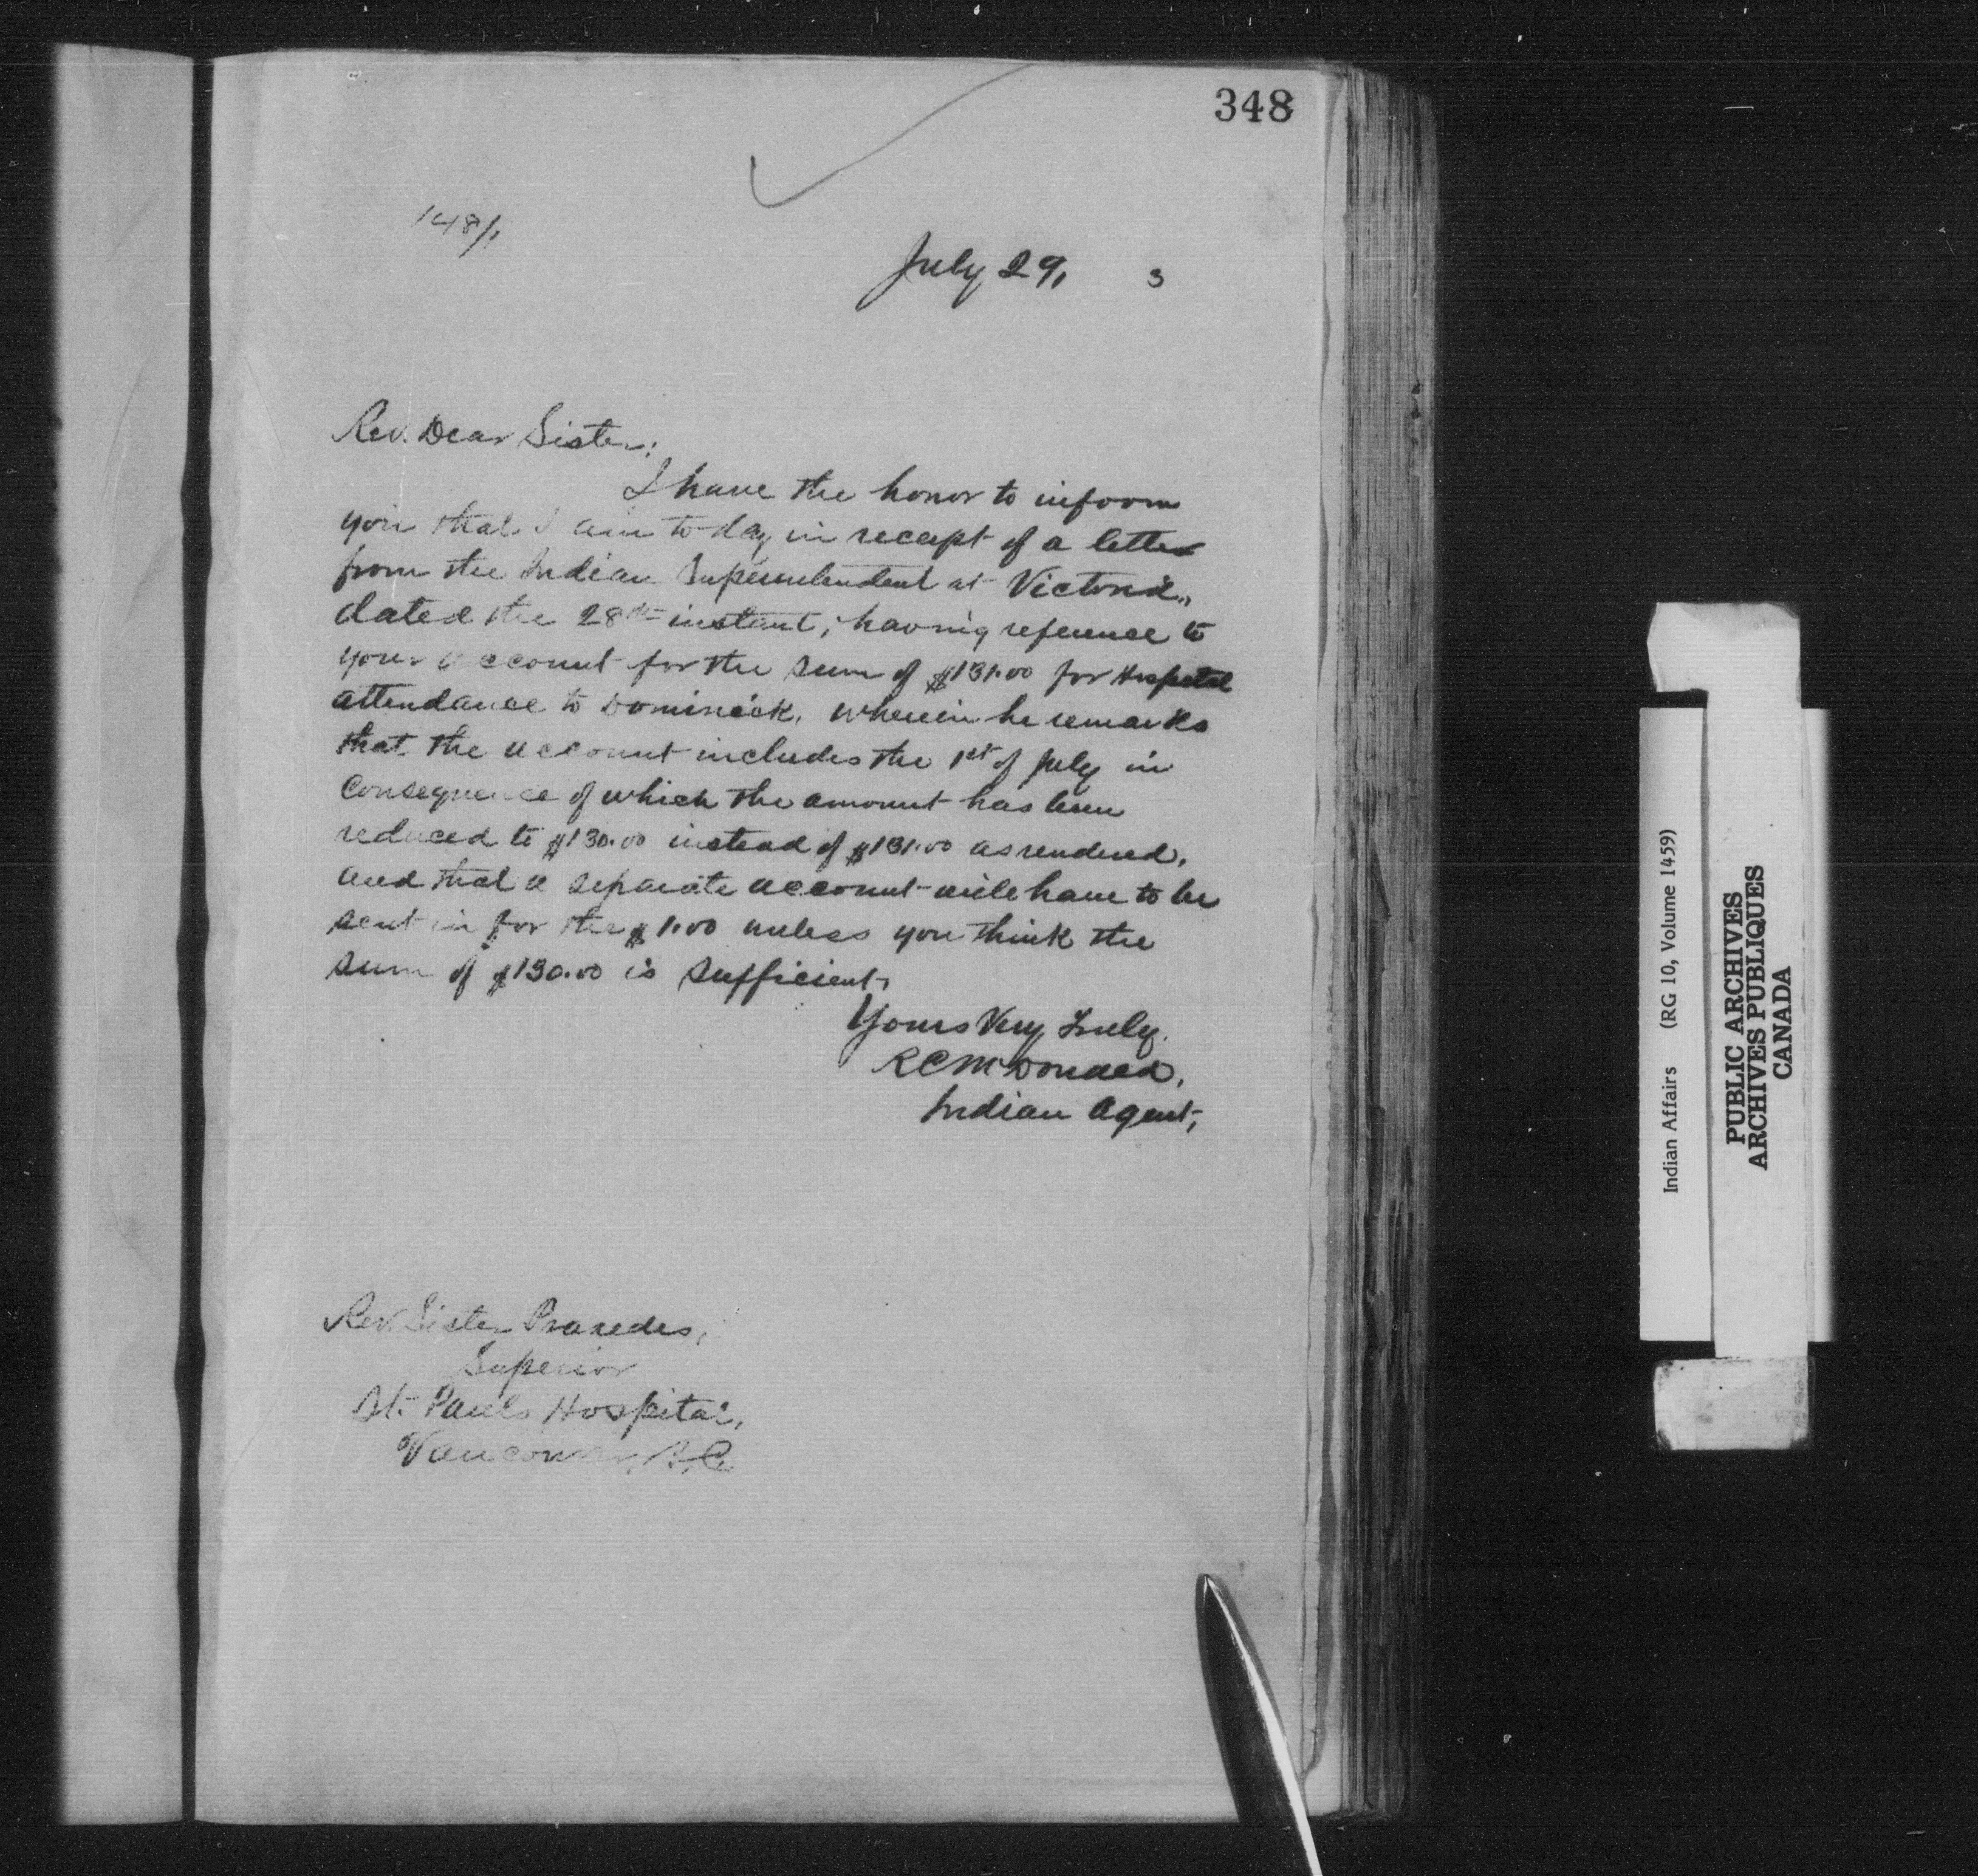 348
148/1
July 29, 3
Rev. Dear Sister;
I have the honor to inform
you that I am to-day in receipt of a letter
from the Indian Superintendent at Victoria,
dated the 28th instant; having reference to
your account for the sum of $131.00 for Hospital
attendance to Dominick, wherein he remarks
that the account includes the 1st of July in
consequence of which the amount has been
reduced to $130.00 instead of $131.00 as rendered,
and that a separate account will have to be
sent in for the $1.00 unless you think the
sum of $130.00 is sufficient,
Yours Very Truly,
R C McDonald,
Indian Agent,
Rev. Sister Praxedes,
Superior
St. Pauls Hospital,
Vancouver, B.C.
Indian Affairs (RG 10, Volume 1459)
PUBLIC ARCHIVES
ARCHIVES PUBLIQUES
CANADA